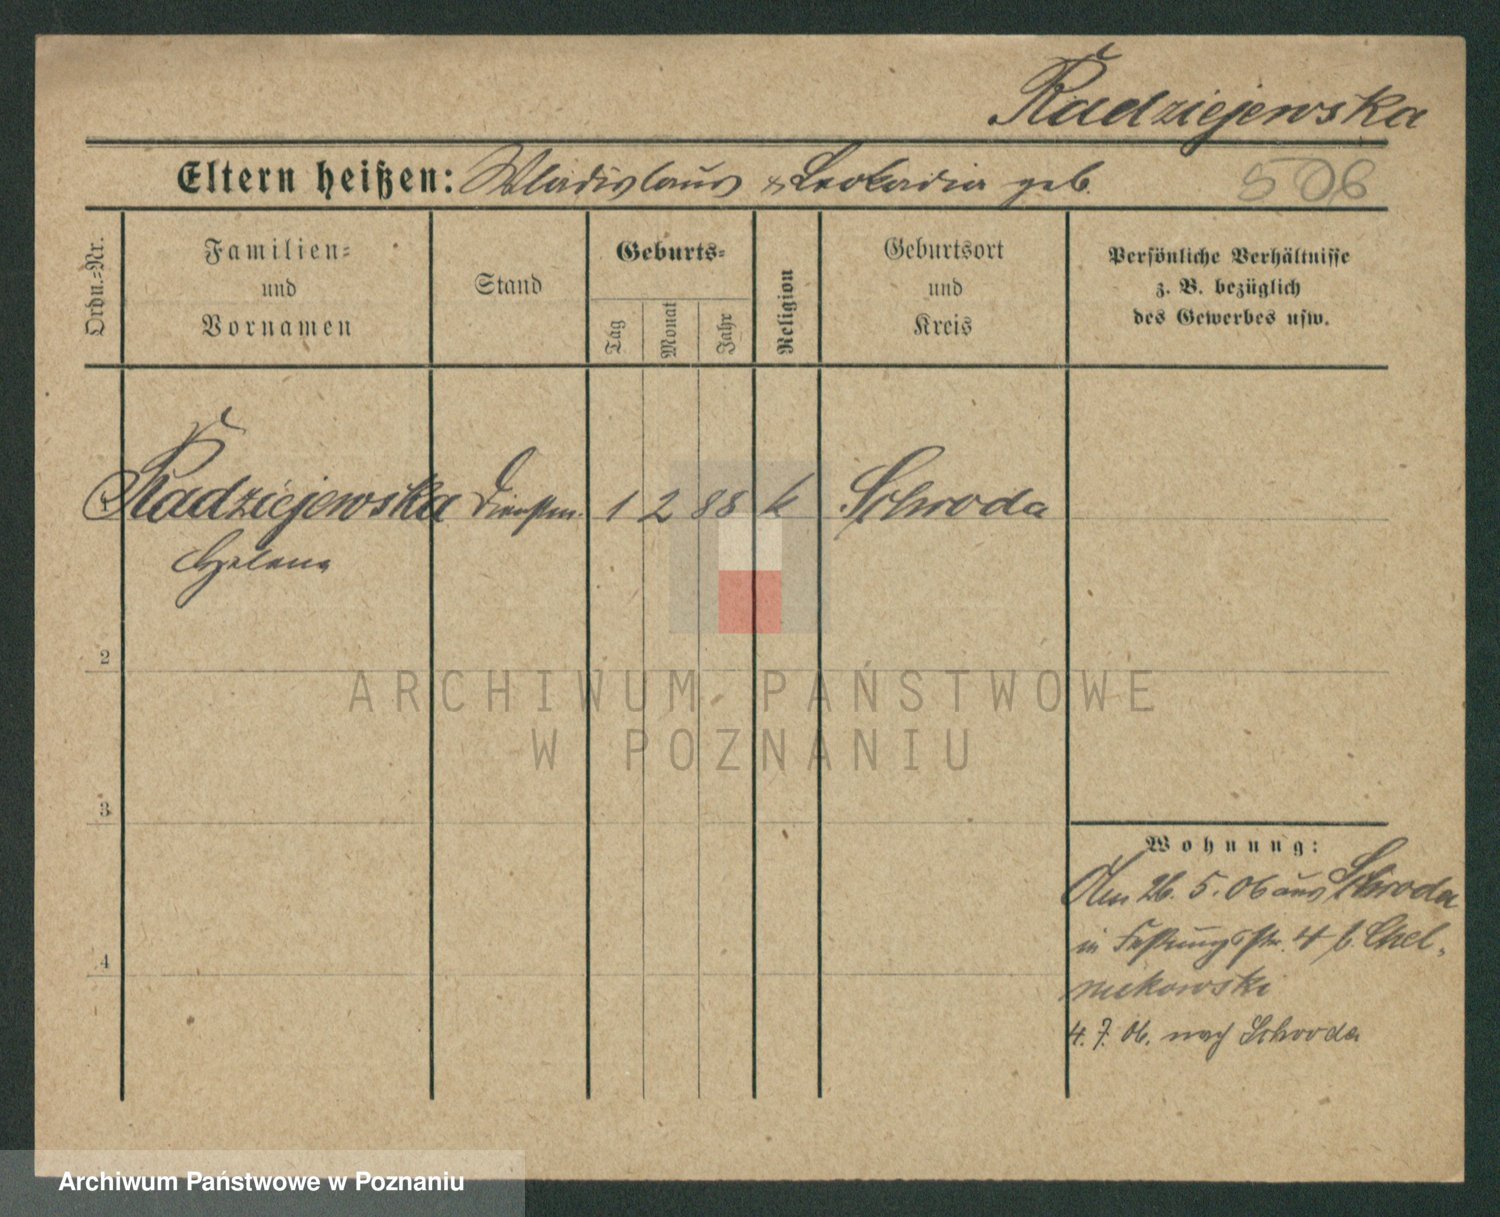 Radziejewska
Eltern heißen: Wladislaus & Leokadia geb.
506
Ordn.=Nr.
Familien=
und
Vornamen
Stand
Geburts=
Tag
Monat
Jahr
Religion
Geburtsort
und
Kreis
Persönliche Verhältnisse
z. B. bezüglich
des Gewerbes usw.
Radziejewska Dienstm. 1 2 88 k Schroda
Helena
2
3
4
ARCHIWUM PAŃSTWOWE
W POZNANIU
Wohnung:
Den 26. 5. 06 aus Schroda
in Festungsstr. 4 b. Chel-
mikowski
4. 7. 06. nach Schroda
Archiwum Państwowe w Poznaniu